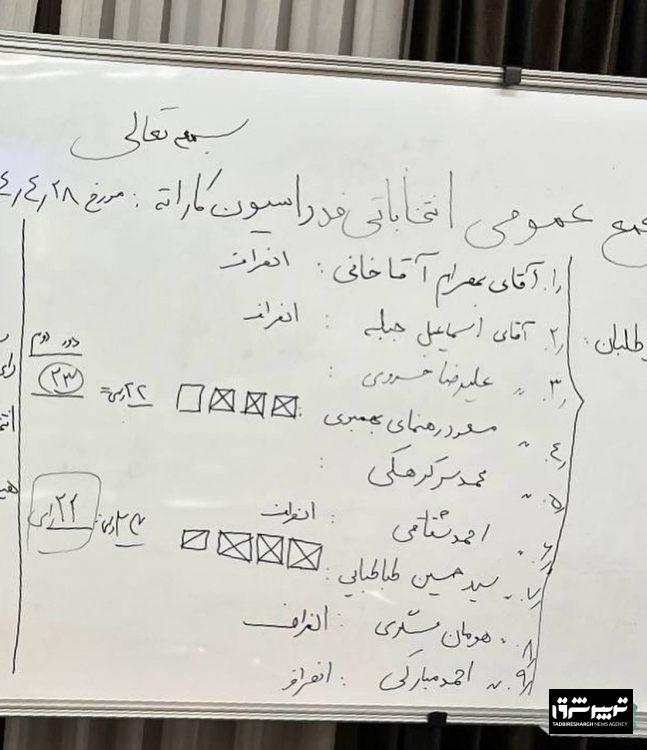 بسمه تعالی
مجمع عمومی انتخاباتی فدراسیون کاراته : مورخ ۴/۴/۲۸
۱. آقای بهرام آقاخانی : انصراف
طلبان :
۲. آقای اسماعیل جبله : انصراف
۳. " علیرضا خسروی :
دور دوم
۴. " مسعود رهنمای بهمبری : ۲۲ رأی = ۲۳
۵. " محمد سرکرهکی :
۶. " احمد شفاهی : انصراف
۷. " سید حسین طباطبایی : ۲۲ رأی
۸. " هومان مشتری : انصراف
۹. " احمد مبارکی : انصراف
تدبیرشرق
TADBIRESHARGH NEWS AGENCY